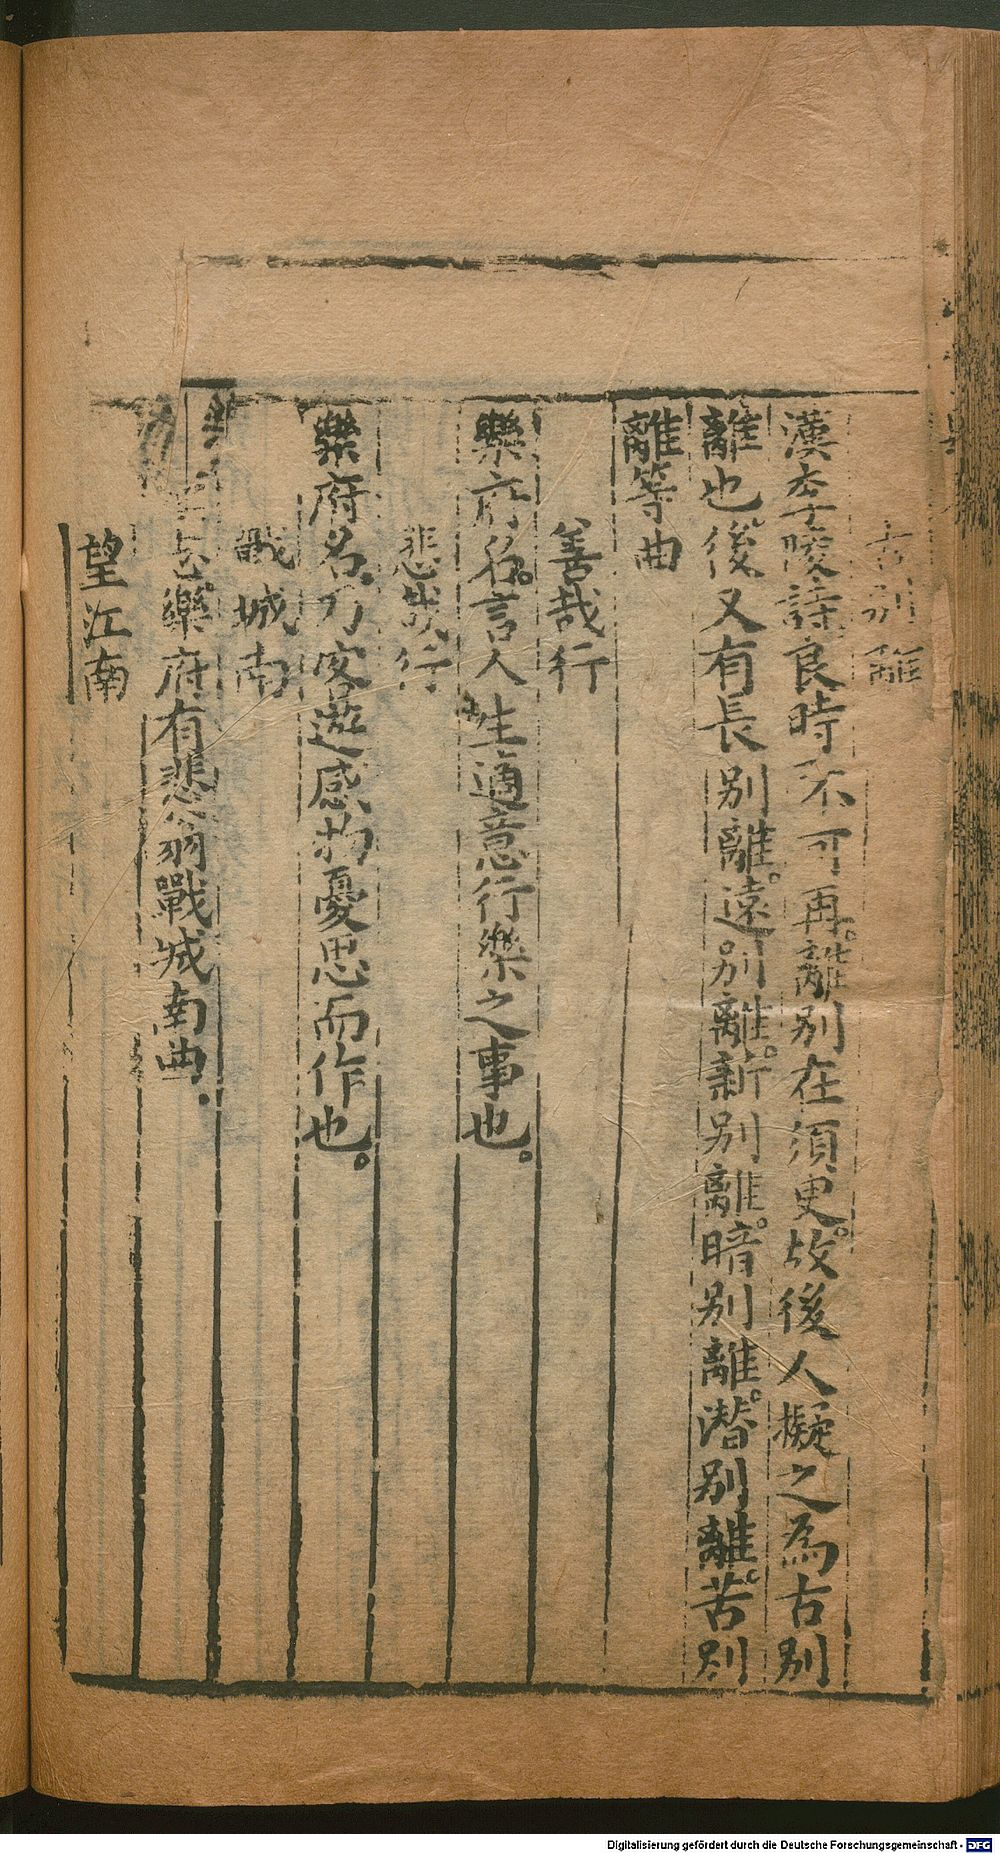 古別離
漢李陵詩良時不可再。離別在須臾。故後人擬之為古別
離也後又有長別離。遠別離。新別離。暗別離。潛別離。苦別
離等曲
善哉行
樂府名。言人生適意行樂之事也。
悲哉行
樂府名。乃客遊感物憂思而作也。
戰城南
樂府有悲翁戰城南曲.
望江南
Digitalisierung gefördert durch die Deutsche Forschungsgemeinschaft - DFG